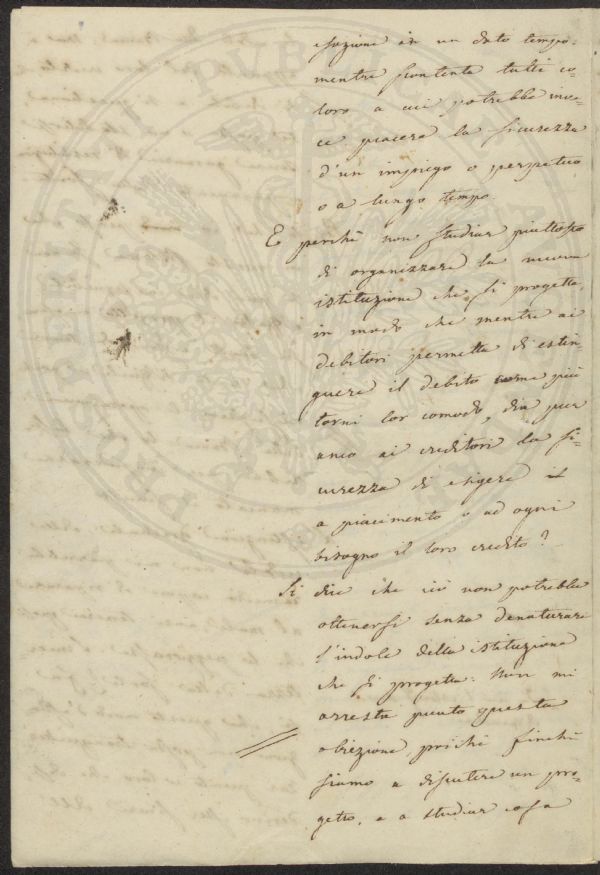 esazione in un dato tempo.
mentre scontenta tutti co-
loro a cui potrebbe inve-
ce piacere la sicurezza
d'un impiego o perpetuo
o a lungo tempo.
E perchè non studiar piuttosto
di organizzare la nuova
istituzione che si progetta,
in modo che mentre ai
debitori permetta di estin-
guere il debito come più
torni lor comodo, dia pur
anco ai creditori la si-
curezza di esigere
a piacimento o ad ogni
bisogno il loro credito?
Si dice che ciò non potrebbe
ottenersi senza denaturare
l'indole della istituzione
che si progetta. Non mi
arresta punto questa
obiezione, perchè finchè
siamo a discutere un pro-
getto, e a studiar cosa